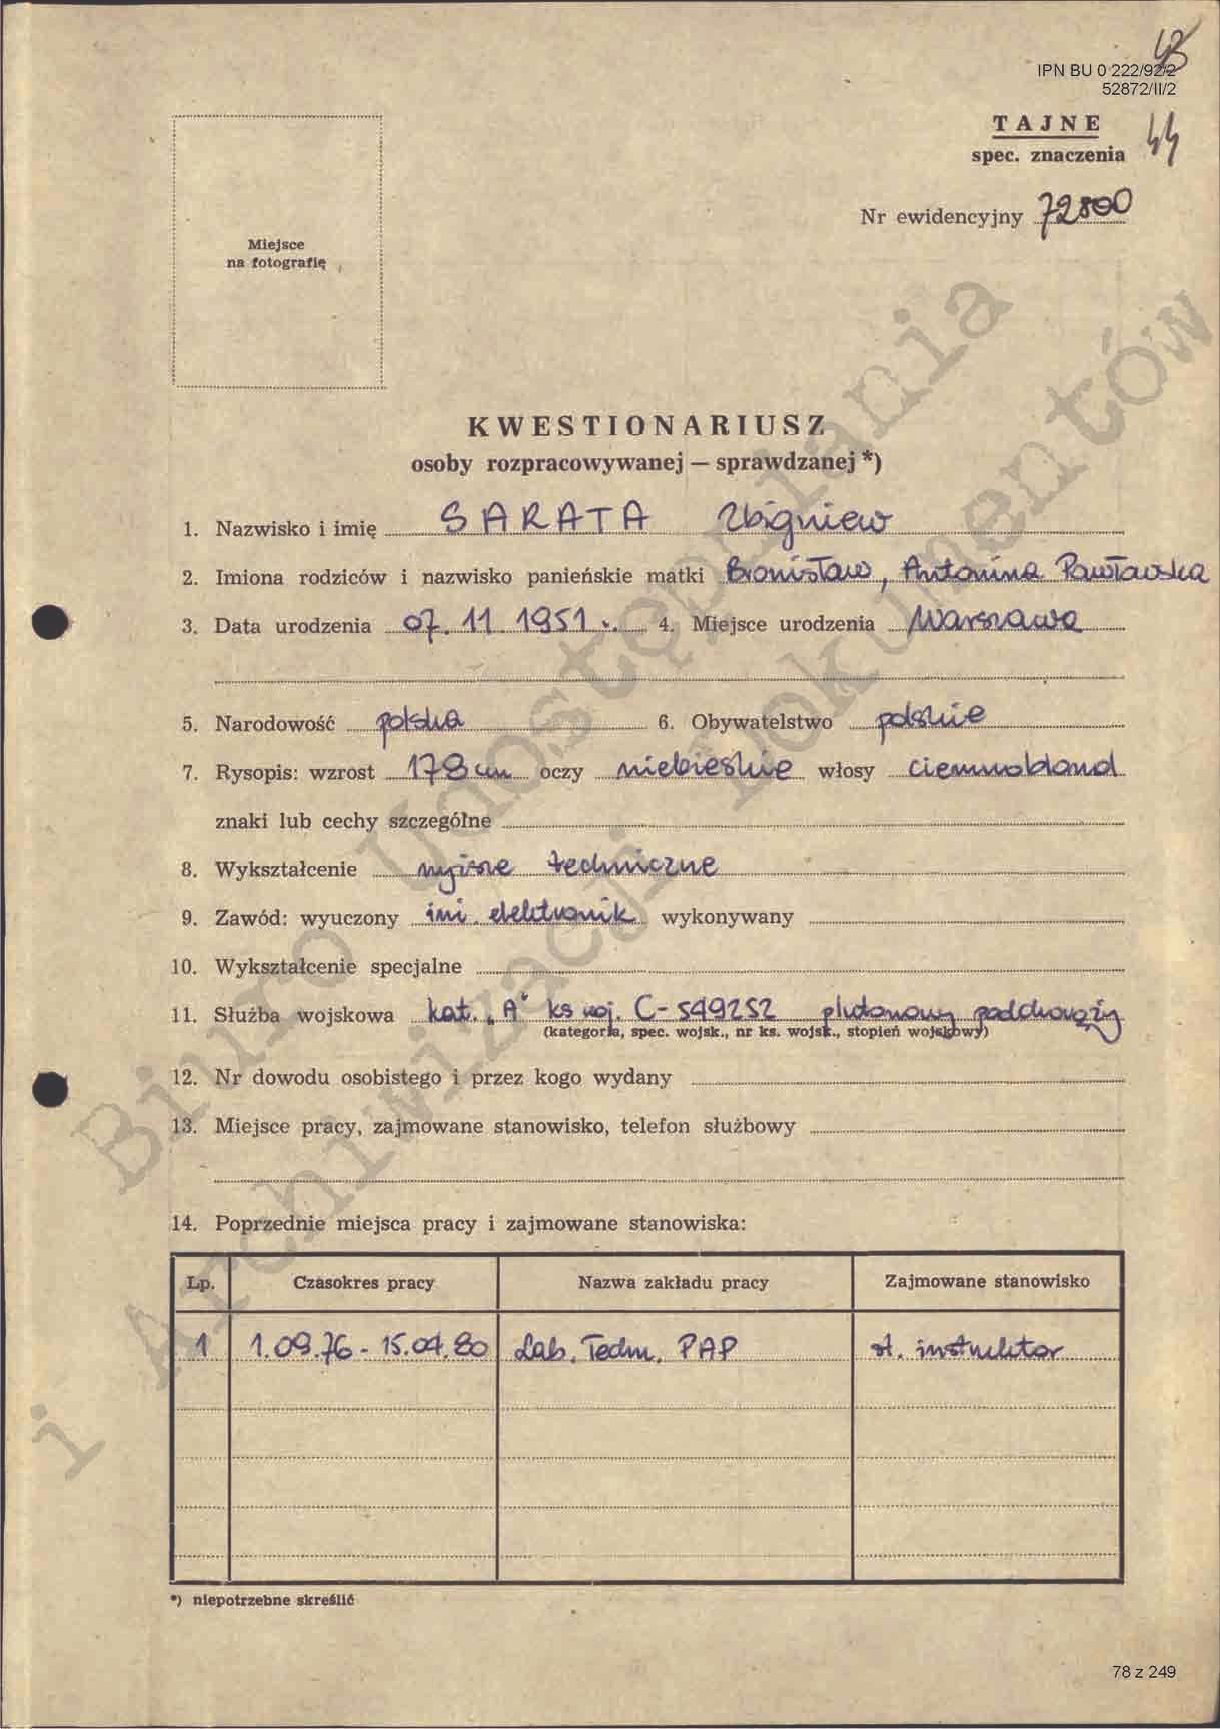 43
IPN BU 0 222/92/2
52872/II/2
TAJNE
spec. znaczenia
44
Nr ewidencyjny 72800
Miejsce
na fotografię
KWESTIONARIUSZ
osoby rozpracowywanej — sprawdzanej *)
1. Nazwisko i imię SARATA Zbigniew
2. Imiona rodziców i nazwisko panieńskie matki Bronisław, Antonina Pawławska
3. Data urodzenia 07.11.1951 r. 4. Miejsce urodzenia Warszawa
5. Narodowość polska 6. Obywatelstwo polskie
7. Rysopis: wzrost 178 cm oczy niebieskie włosy ciemnoblond
znaki lub cechy szczególne
8. Wykształcenie wyższe techniczne
9. Zawód: wyuczony inż. elektronik wykonywany
10. Wykształcenie specjalne
11. Służba wojskowa kat. „A" ks woj. C-549252 plutonowy podchorąży
(kategoria, spec. wojsk., nr ks. wojsk., stopień wojskowy)
12. Nr dowodu osobistego i przez kogo wydany
13. Miejsce pracy, zajmowane stanowisko, telefon służbowy
14. Poprzednie miejsca pracy i zajmowane stanowiska:
Lp. Czasokres pracy Nazwa zakładu pracy Zajmowane stanowisko
1 1.09.76 - 15.04.80 Lab. Techn. PAP st. instruktor
*) niepotrzebne skreślić
78 z 249
Biuro Udostępniania
i Archiwizacji Dokumentów